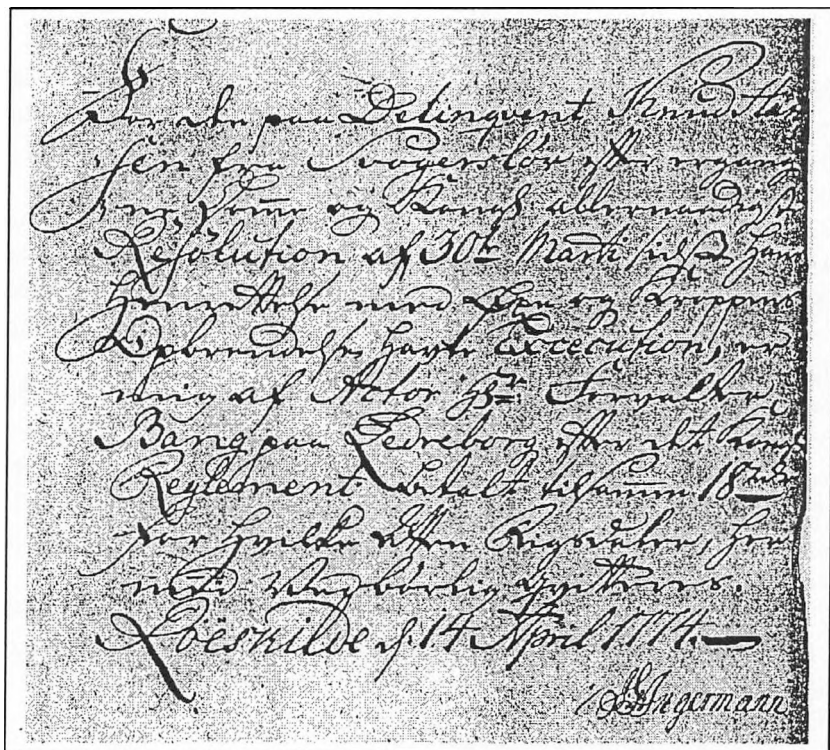 For den paa Delinqvent Knud Han
sen fra Svogerslöv efter ergang
ne Domme og Kongl allernaadigste
Resolution af 30te Marti sidst, han
Henrettelse med Öxe og Kroppens
Opbrendelse havte Execution, er
mig af Actor Hr. Forvalter
Bang paa Ledreborg efter det Kong
Reglement betalt tilsamm 18
for hvilke Atten Rigsdaler, her
med Vedbörlig qvitteres.
Roëskilde d. 14 April 1774.
Angermann